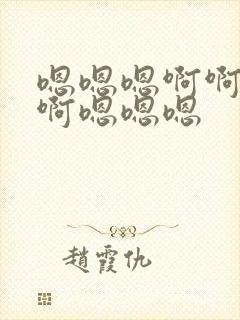 嗯嗯嗯啊啊
啊嗯嗯嗯
趙霞仇